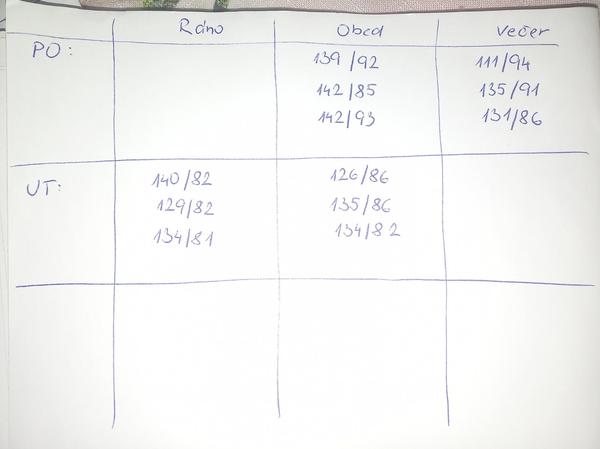 Ráno Obed Večer
PO: 139/92 111/94
142/85 135/91
142/93 131/86
UT: 140/82 126/86
129/82 135/86
134/81 134/82